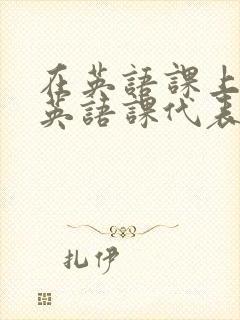 在英語課上
英語課代表
扎伊